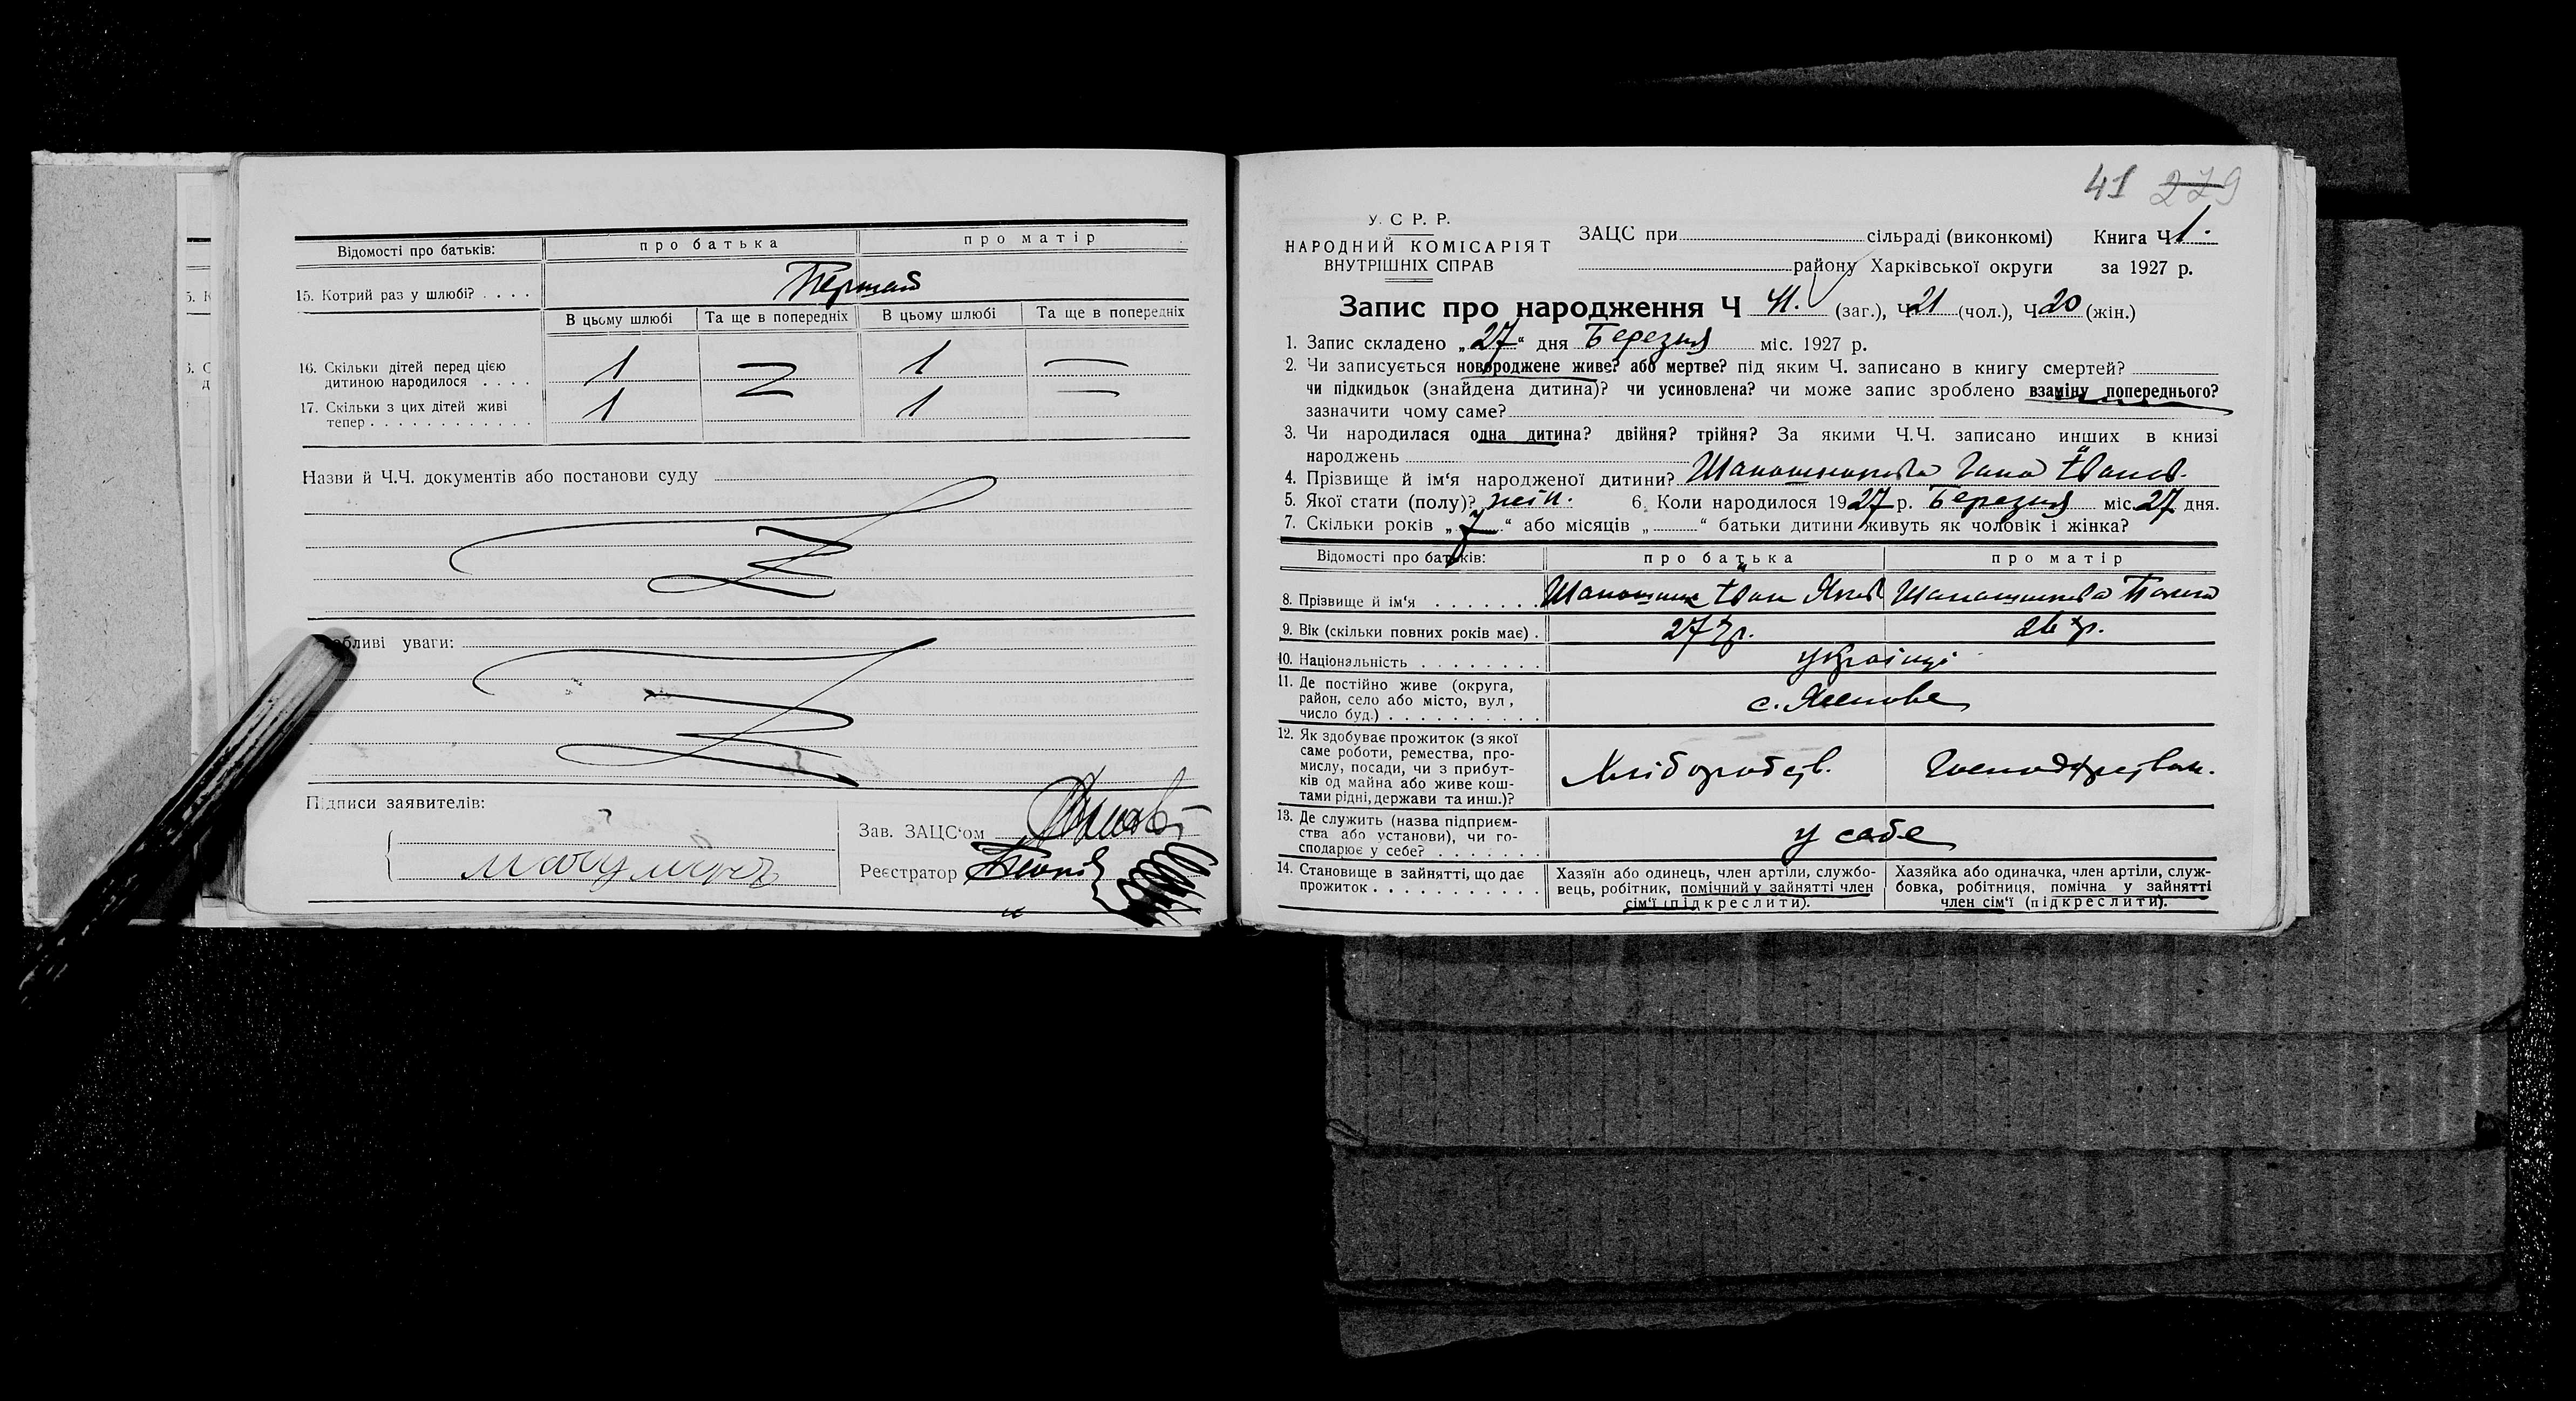 Відомості про батьків: про батька про матір
15. Котрий раз у шлюбі? . . . . Першай
В цьому шлюбі Та ще в попередніх В цьому шлюбі Та ще в попередніх
16. Скільки дітей перед цією
дитиною народилося . . . . 1 — 1 —
17. Скільки з цих дітей живі
тепер . . . . . . . . . . . . 1 — 1 —
Назви й Ч.Ч. документів або постанови суду
обливі уваги:
Підписи заявителів:
Зав. ЗАЦС'ом
Реєстратор
41 279
У. С Р. Р.
НАРОДНИЙ КОМІСАРІЯТ
ВНУТРІШНІХ СПРАВ
ЗАЦС при сільраді (виконкомі) Книга Ч 1.
району Харківської округи за 1927 р.
Запис про народження Ч 41. (заг.), Ч 21 (чол.), Ч 20 (жін.)
1. Запис складено „27“ дня Березня міс. 1927 р.
2. Чи записується новороджене живе? або мертве? під яким Ч. записано в книгу смертей?
чи підкидьок (знайдена дитина)? чи усиновлена? чи може запис зроблено взаміну попереднього?
зазначити чому саме?
3. Чи народилася одна дитина? двійня? трійня? За якими Ч.Ч. записано инших в книзі
народжень
4. Прізвище й ім'я народженої дитини?
5. Якої стати (полу)? жін. 6. Коли народилося 1927 р. Березня міс. 27 дня.
7. Скільки років „7“ або місяців „ “ батьки дитини живуть як чоловік і жінка?
Відомості про батьків: про батька про матір
8. Прізвище й ім'я . . . . . . .
9. Вік (скільки повних років має) . 27 р. 26 р.
10. Національність . . . . . . . . українці
11. Де постійно живе (округа,
район, село або місто, вул,
число буд.) . . . . . . . . . . . с.
12. Як здобуває прожиток (з якої
саме роботи, ремества, про-
мислу, посади, чи з прибут-
ків од майна або живе кош-
тами рідні, держави та инш.)? Хліборобств.
13. Де служить (назва підприєм-
ства або установи), чи го-
сподарює у себе? . . . . . . . у себе
14. Становище в зайнятті, що дає
прожиток . . . . . . . . . . . .
Хазяїн або одинець, член артіли, службо-
вець, робітник, помічний у зайнятті член
сім'ї (підкреслити).
Хазяйка або одиначка, член артіли, служ-
бовка, робітниця, помічна у зайнятті
член сім'ї (підкреслити).